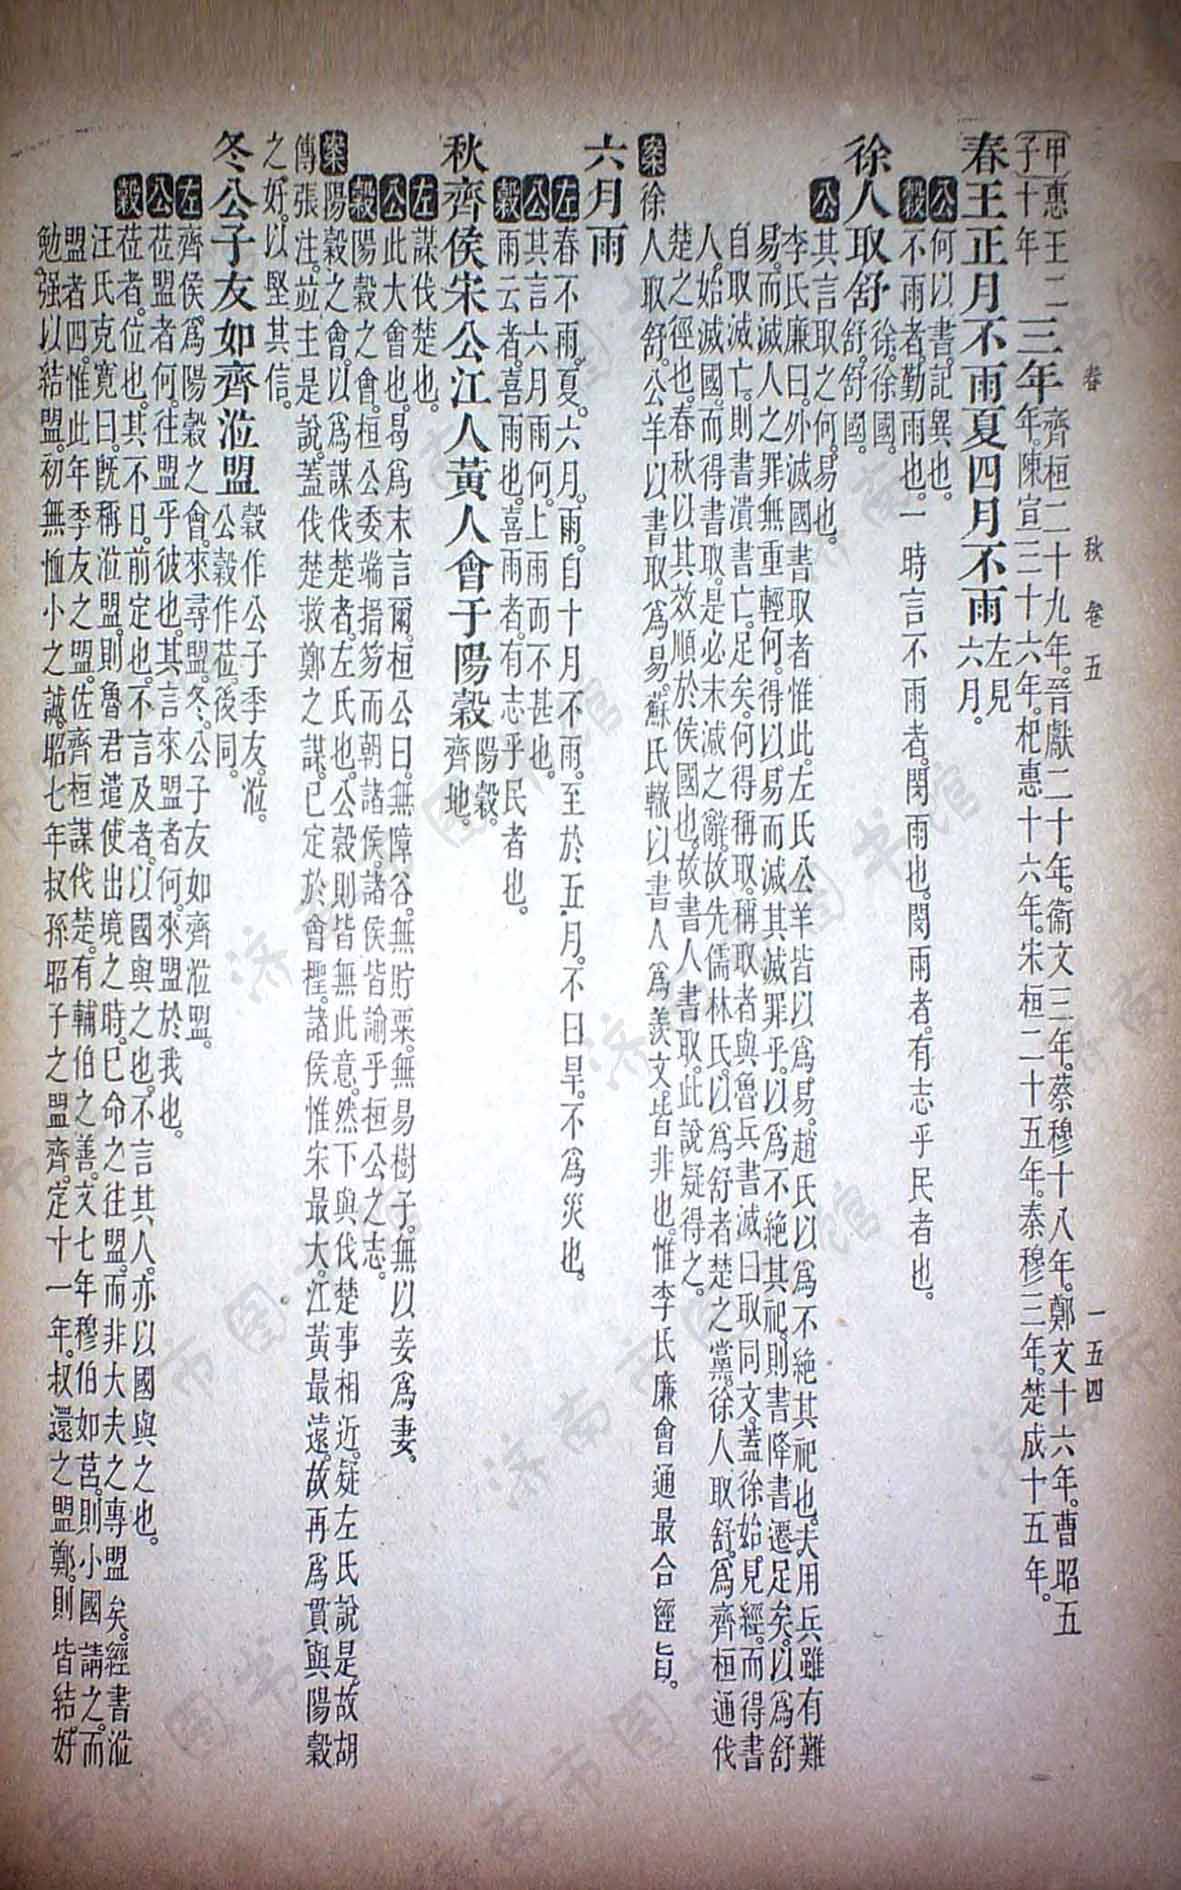 春 秋 卷五 一五四
甲子 惠王二十年 三年 齊桓二十九年。晉獻二十年。衞文三年。蔡穆十八年。鄭文十六年。曹昭五
年。陳宣三十六年。杞惠十六年。宋桓二十五年。秦穆三年。楚成十五年。
春王正月不雨夏四月不雨 左見六月。
公 何以書。記異也。
穀 不雨者。勤雨也。一時言不雨者。閔雨也。閔雨者。有志乎民者也。
徐人取舒 徐。徐國。舒。舒國。
公 其言取之何。易也。
李氏廉曰。外滅國書取者惟此。左氏公羊皆以爲易。趙氏以爲不絶其祀也。夫用兵。雖有難
易。而滅人之罪無重輕。何得以易而滅其滅罪乎。以爲不絶其祀。則書降書遷足矣。以爲舒
自取滅亡。則書潰書亡。足矣。何得稱取。稱取者與魯兵書滅曰取同文。蓋徐始見經。而得書
人。始滅國。而得書取。是必未滅之辭。故先儒林氏。以爲舒者楚之黨。徐人取舒。爲齊桓通伐
楚之徑也。春秋以其效順於侯國也。故書人書取。此說疑得之。
案 徐人取舒。公羊以書取爲易。蘇氏轍以書人爲羨文。皆非也。惟李氏廉會通最合經旨。
六月雨
左 春不雨。夏六月。雨。自十月不雨。至於五月。不曰旱。不爲災也。
公 其言六月雨何。上雨而不甚也。
穀 雨云者。喜雨也。喜雨者。有志乎民者也。
秋齊侯宋公江人黃人會于陽穀 陽穀。齊地。
左 謀伐楚也。
公 此大會也。曷爲末言爾。桓公曰。無障谷。無貯粟。無易樹子。無以妾爲妻。
穀 陽穀之會。桓公委端搢笏而朝諸侯。諸侯皆諭乎桓公之志。
案 陽穀之會。以爲謀伐楚者。左氏也。公穀則皆無此意。然下與伐楚事相近。疑左氏說是。故胡
傳張注。竝主是說。蓋伐楚救鄭之謀。已定於會檉。諸侯惟宋最大。江黃最遠。故再爲貫與陽穀
之好。以堅其信。
冬公子友如齊涖盟 穀作公子季友。涖。公穀作莅。後同。
左 齊侯。爲陽穀之會。來尋盟。冬。公子友如齊涖盟。
公 莅盟者何。往盟乎彼也。其言來盟者何。來盟於我也。
穀 莅者。位也。其不日。前定也。不言及者。以國與之也。不言其人。亦以國與之也。
汪氏克寬曰。旣稱涖盟。則魯君遣使出境之時。已命之往盟。而非大夫之專盟矣。經書涖
盟者四。惟此年季友之盟。佐齊桓謀伐楚。有輔伯之善。文七年穆伯如莒。則小國請之。而
勉强以結盟。初無恤小之誠。昭七年叔孫昭子之盟齊。定十一年。叔還之盟鄭。則皆結好